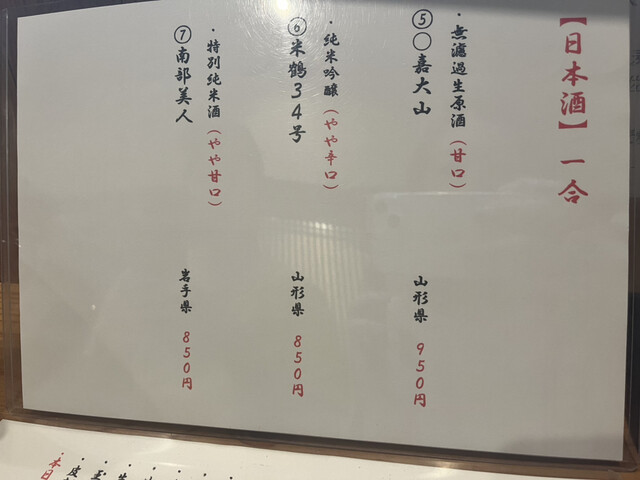 【日本酒】一合
・無濾過生原酒(甘口)
⑤〇嘉大山 山形県 950円
・純米吟醸(やや辛口)
⑥米鶴34号 山形県 850円
・特別純米酒(やや甘口)
⑦南部美人 岩手県 850円
・本日
・皮